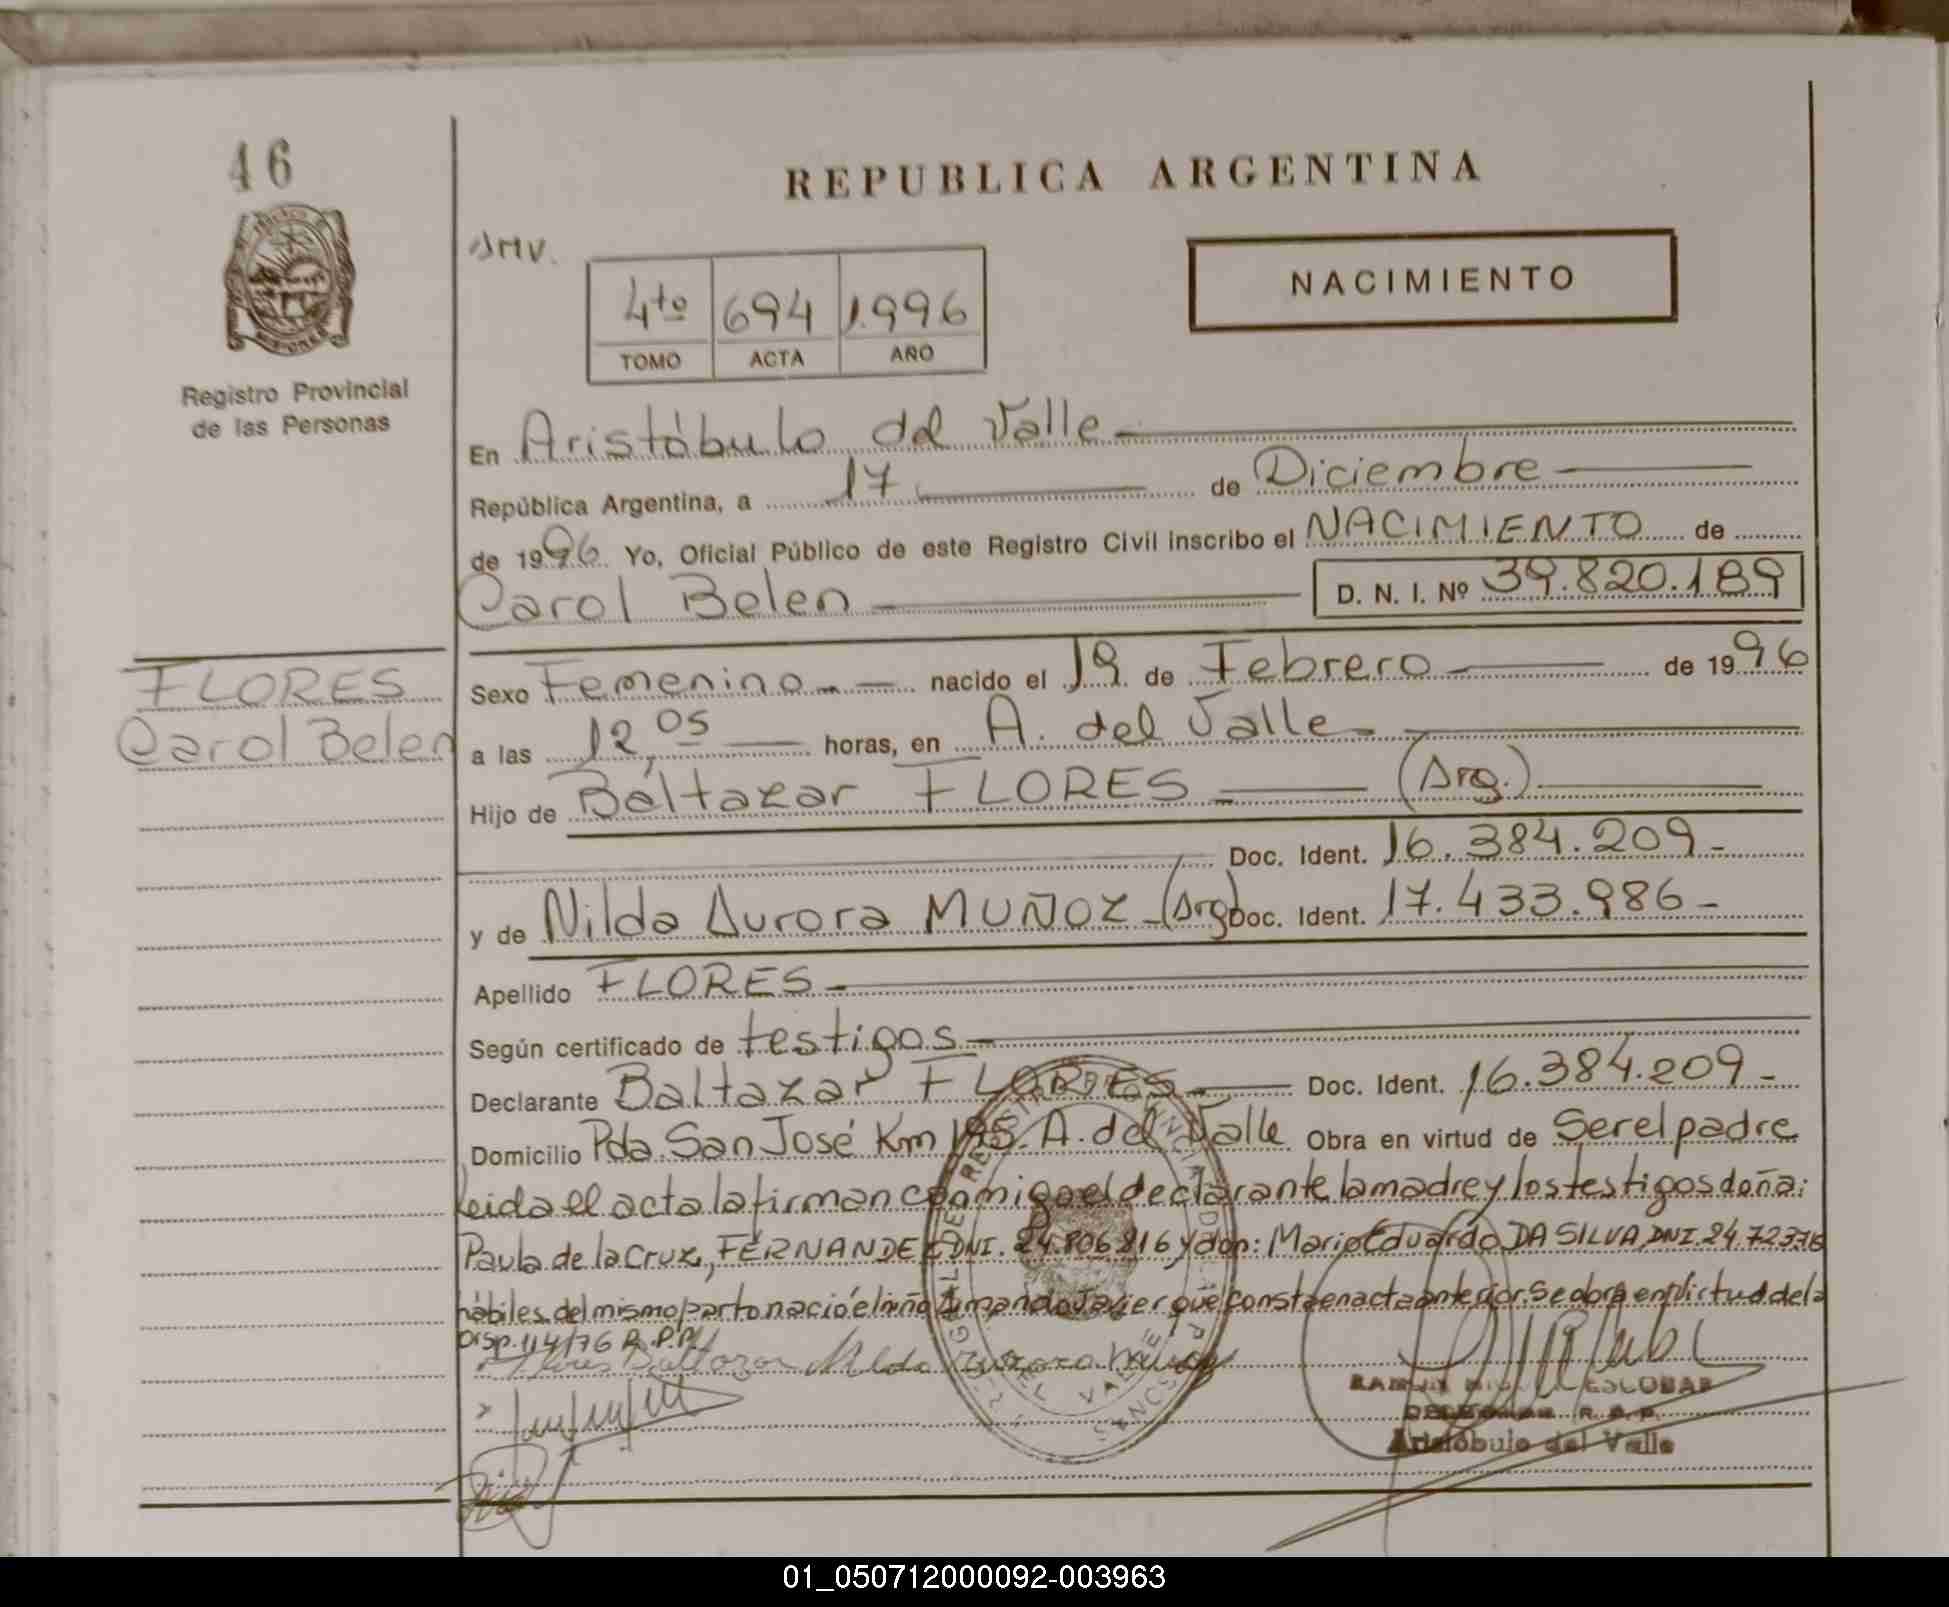 46
REPUBLICA ARGENTINA
NACIMIENTO
4to 694 1.996
TOMO ACTA AÑO
Registro Provincial
de las Personas
En Aristóbulo del Valle
República Argentina, a 17 de Diciembre
de 1996 Yo, Oficial Público de este Registro Civil inscribo el NACIMIENTO de
Carol Belen D. N. I. Nº 39.820.189
FLORES
Carol Belen
Sexo Femenino nacido el 19 de Febrero de 1996
a las 12,05 horas, en A. del Valle
Hijo de Baltazar FLORES (Arg.)
Doc. Ident. 16.384.209-
y de Nilda Aurora MUÑOZ (Arg) Doc. Ident. 17.433.986-
Apellido FLORES
Según certificado de testigos
Declarante Baltazar FLORES Doc. Ident. 16.384.209-
Domicilio Pda. San José Km 195. A. del Valle Obra en virtud de Ser el padre
leida el acta la firman conmigo el declarante la madre y los testigos doña:
Paula de la Cruz, FERNANDEZ DNI. 24.806816 y don: Mario Eduardo DA SILVA, DNI.
hábiles. del mismo parto nació el niño Armando Javier que consta en acta anterior. Se obra en virtud de la
Disp. 114/76 R.P.P.
Flores Baltazar Nilda Aurora Muñoz
ESCOBAR
R. P. P.
Aristóbulo del Valle
01_050712000092-003963